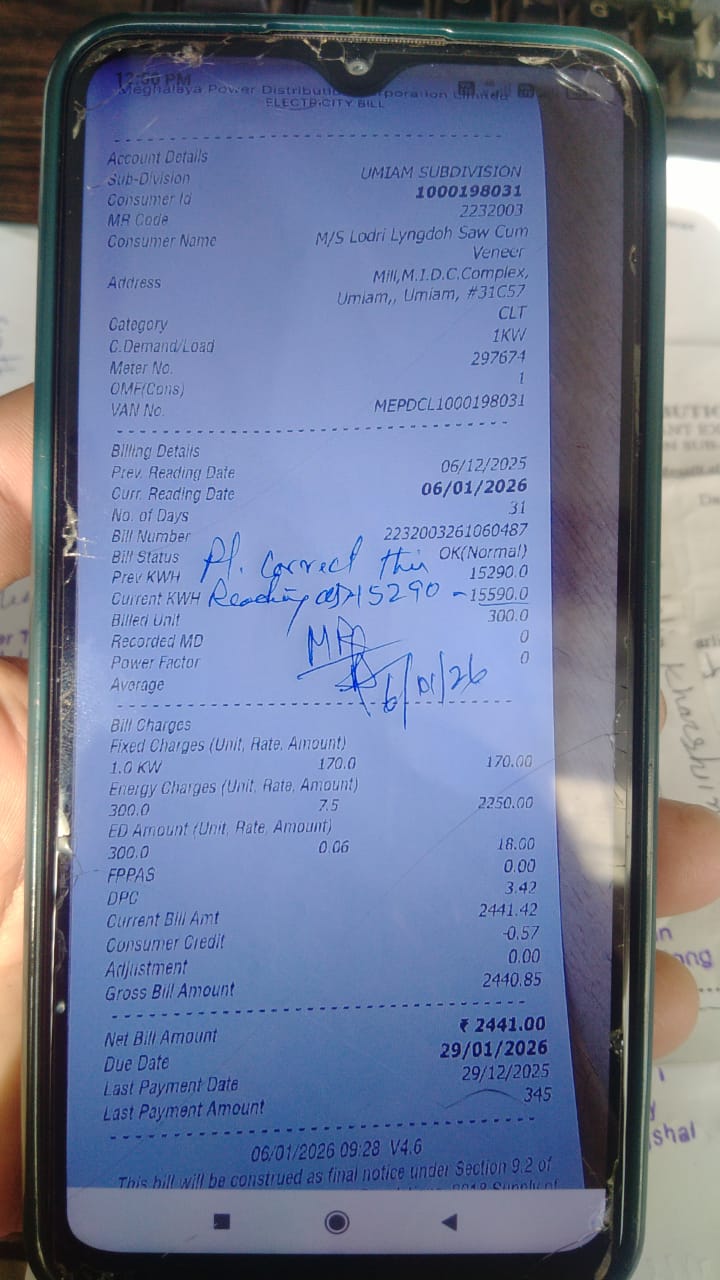 12:56 PM
Meghalaya Power Distribution Corporation Limited
ELECTRICITY BILL
Account Details
Sub-Division UMIAM SUBDIVISION
Consumer Id 1000198031
MR Code 2232003
Consumer Name M/S Lodri Lyngdoh Saw Cum
Veneer
Address Mill,M.I.D.C.Complex,
Umiam,, Umiam, #31C57
Category CLT
C.Demand/Load 1KW
Meter No. 297674
OMF(Cons) 1
VAN No. MEPDCL1000198031
Billing Details
Prev. Reading Date 06/12/2025
Curr. Reading Date 06/01/2026
No. of Days 31
Bill Number 2232003261060487
Bill Status OK(Normal)
Pl. correct this
Prev KWH 15290.0
Current KWH 15590.0
Reading as 15290
Billed Unit 300.0
Recorded MD 0
Power Factor 0
Average
6/01/26
Bill Charges
Fixed Charges (Unit, Rate, Amount)
1.0 KW 170.0 170.00
Energy Charges (Unit, Rate, Amount)
300.0 7.5 2250.00
ED Amount (Unit, Rate, Amount)
300.0 0.06 18.00
FPPAS 0.00
DPC 3.42
Current Bill Amt 2441.42
Consumer Credit -0.57
Adjustment 0.00
Gross Bill Amount 2440.85
Net Bill Amount ₹ 2441.00
Due Date 29/01/2026
Last Payment Date 29/12/2025
Last Payment Amount 345
06/01/2026 09:28 V4.6
This bill will be construed as final notice under Section 9.2 of